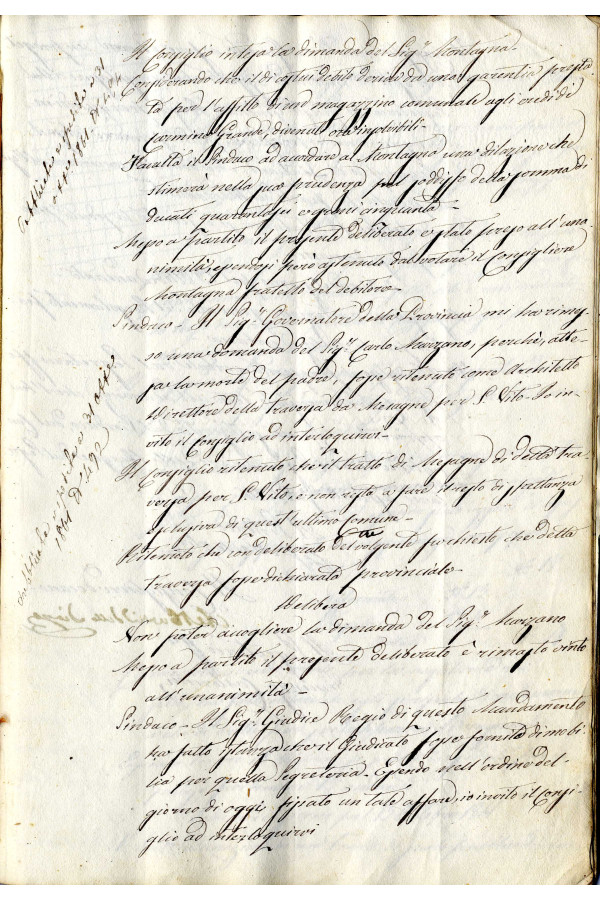 Il Consiglio intesa la dimanda del Sig.r Montagna.
Considerando che il di costui debito deriva da una garentia presta-
ta per l'affitto di un magazzino comunale agli eredi di
Carmine Grande, divenuti ora insolvibili.
Facoltà il Sindaco ad accordare al Montagna una dilazione che
stimerà nella sua prudenza pel soddisfo della somma di
ducati quarantasei e grani cinquanta.
Messo a partito il presente deliberato è stato preso all'una-
nimità, essendosi però astenuto dal votare il Consigliere
Montagna fratello del debitore.
Sindaco - Il Sig.r Governatore della Provincia mi ha rimes-
so una domanda del Sig.r Carlo Marzano, perchè, atte-
sa la morte del padre, fosse ritenuto come Architetto
Direttore della traversa da Mesagne per S. Vito. Io in-
vito il Consiglio ad interloquirvi.
Il Consiglio ritenuto che il tratto di Mesagne di detta tra-
versa per S. Vito, e non resta a fare il resto di spettanza
esclusiva di quest'ultimo comune.
Ritenuto che con deliberato del volgente fu chiesto che detta
traversa fosse dichiarata provinciale.
Delibera
Non poter accogliere la dimanda del Sig.r Marzano
Messo a partito il presente deliberato è rimasto vinto
all'unanimità.
Sindaco - Il Sig.r Giudice Regio di questo Mandamento
ha fatto istanza che il Giudicato fosse fornito di mobi-
lia per quella Segreteria. Essendo nell'ordine del
giorno di oggi fissato un tale affare, io invito il consi-
glio ad interloquirvi
Pubblicato e spedito a 31
1861
Pubblicato e spedito a 31
1861 N. 492